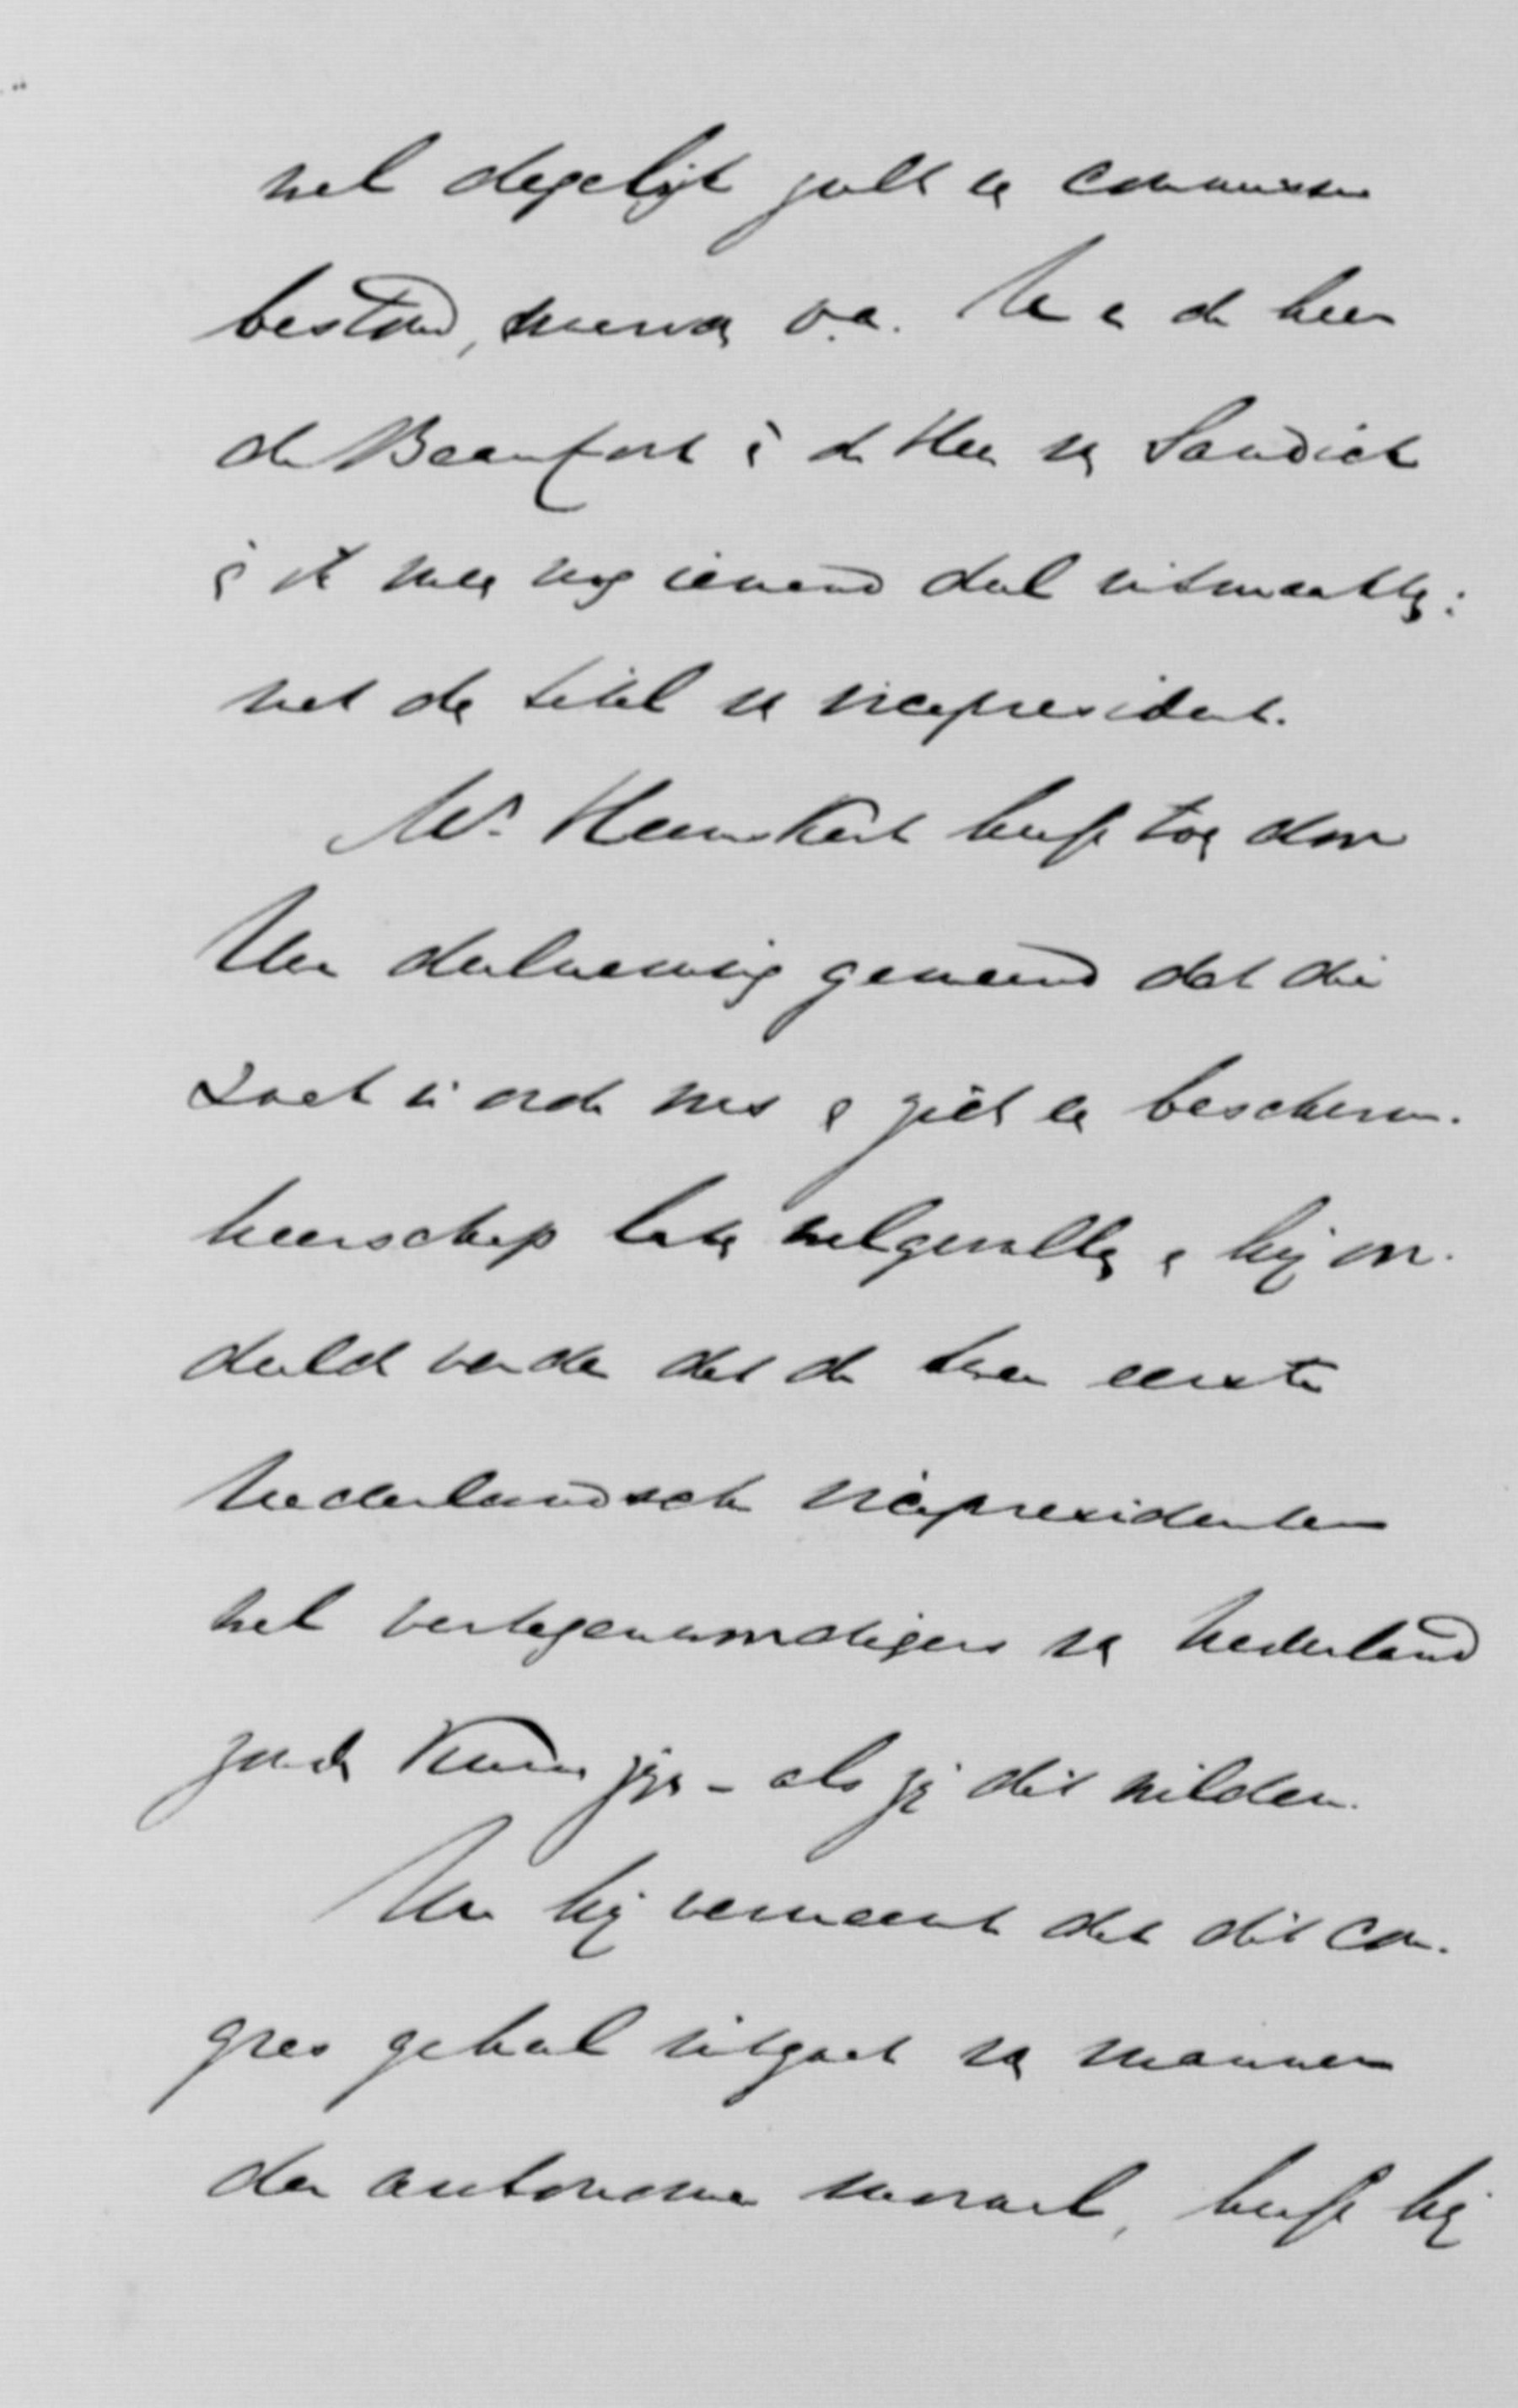 wel degelijk zulk een commissie
bestond, waarvan o.a. U en de heer
de Beaufort en de Heer van Sandick
en ik nog iemand deel uitmaakten:
met den titel van vicepresident.
Mr. Heemskerk heeft toen door
Uw deelneming gemeend dat die
zaak in orde was en zich een bescherm-
heerschap laten welgevallen en hij oor-
deelde verder dat de twee eerste
Nederlandsche vicepresidenten
wel vertegenwoordigers van Nederland
zouden kunnen zijn - als zij dit wilden.
Nu hij verneemt dat dit con-
gres geheel uitgaat van mannen
der autonome moraal, heeft hij